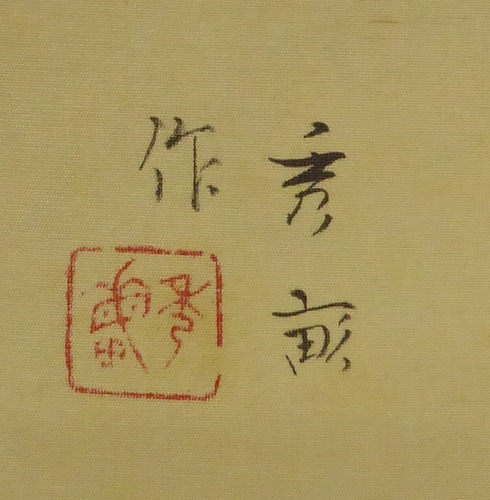 秀畝
作
秀畝